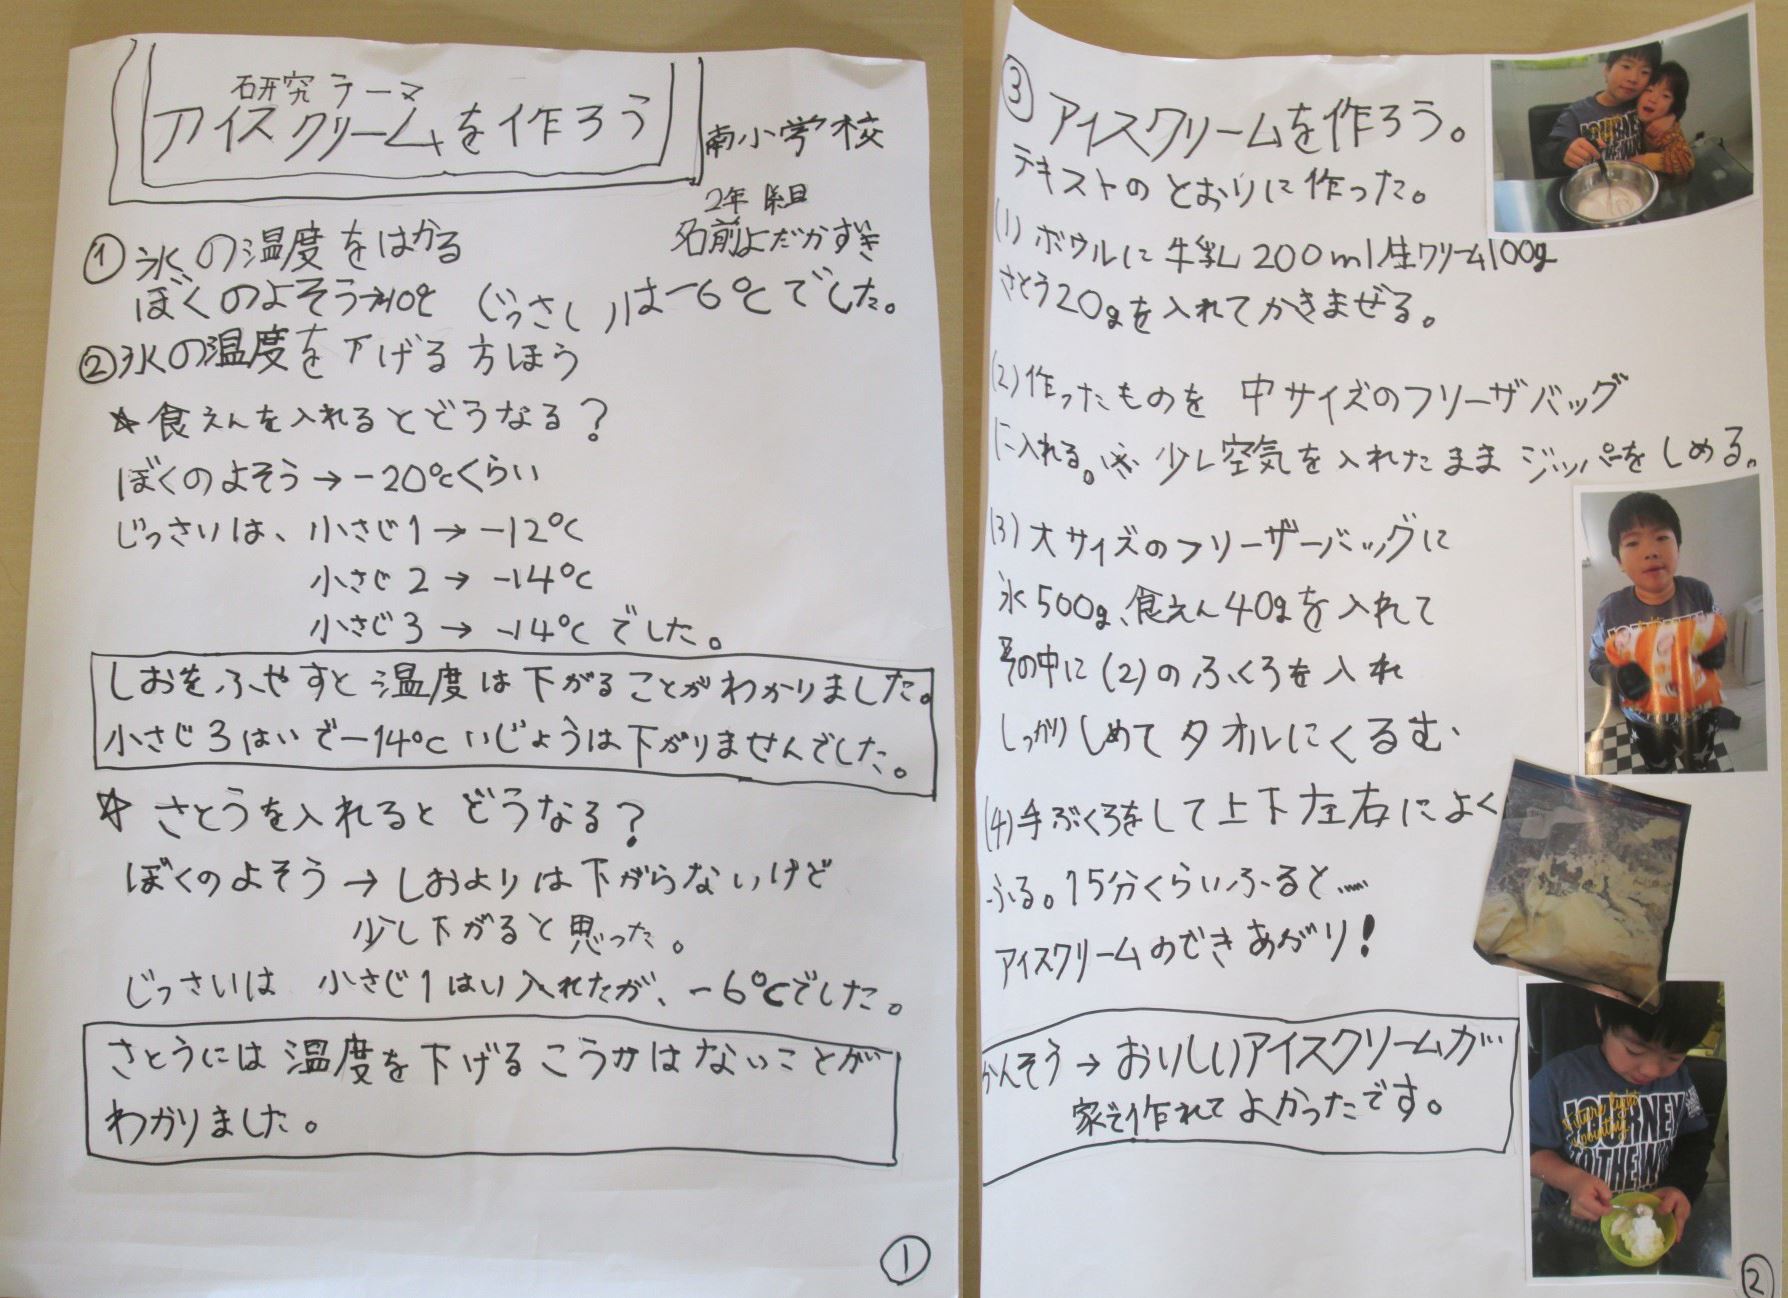 研究テーマ
アイスクリームを作ろう
南小学校
2年 組
名前よだかずき
① 氷の温度をはかる
ぼくのよそう→-10℃ (じっさい)は-6℃でした。
②氷の温度を下げる方ほう
☆食えんを入れるとどうなる?
ぼくのよそう→-20℃くらい
じっさいは、小さじ1→-12℃
小さじ2→-14℃
小さじ3→-14℃でした。
しおをふやすと温度は下がることがわかりました。
小さじ3はいで-14℃いじょうは下がりませんでした。
☆さとうを入れるとどうなる?
ぼくのよそう→しおよりは下がらないけど
少し下がると思った。
じっさいは 小さじ1はい入れたが、-6℃でした。
さとうには温度を下げるこうかはないことが
わかりました。
①
③ アイスクリームを作ろう。
テキストのとおりに作った。
(1)ボウルに牛乳200ml生クリーム100g
さとう20gを入れてかきまぜる。
(2)作ったものを 中サイズのフリーザバッグ
に入れる。※少し空気を入れたままジッパーをしめる。
(3)大サイズのフリーザーバッグに
氷500g、食えん40gを入れて
その中に(2)のふくろを入れ
しっかりしめてタオルにくるむ
(4)手ぶくろをして上下左右によく
ふる。15分くらいふると……
アイスクリームのできあがり!
かんそう→おいしいアイスクリームが
家で作れてよかったです。
②
JOURNEY